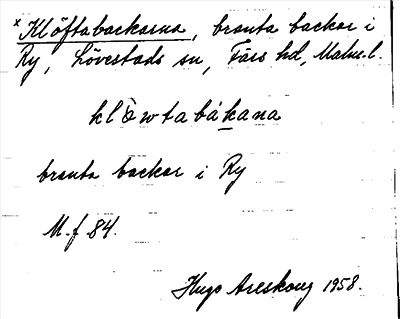 * Klöftabackarna, branta backar i
Ry, Lövestads sn, Färs hd, Malm.l.
klòwtabákana
branta backar i Ry
M.f. 84.
Hugo Areskoug 1958.